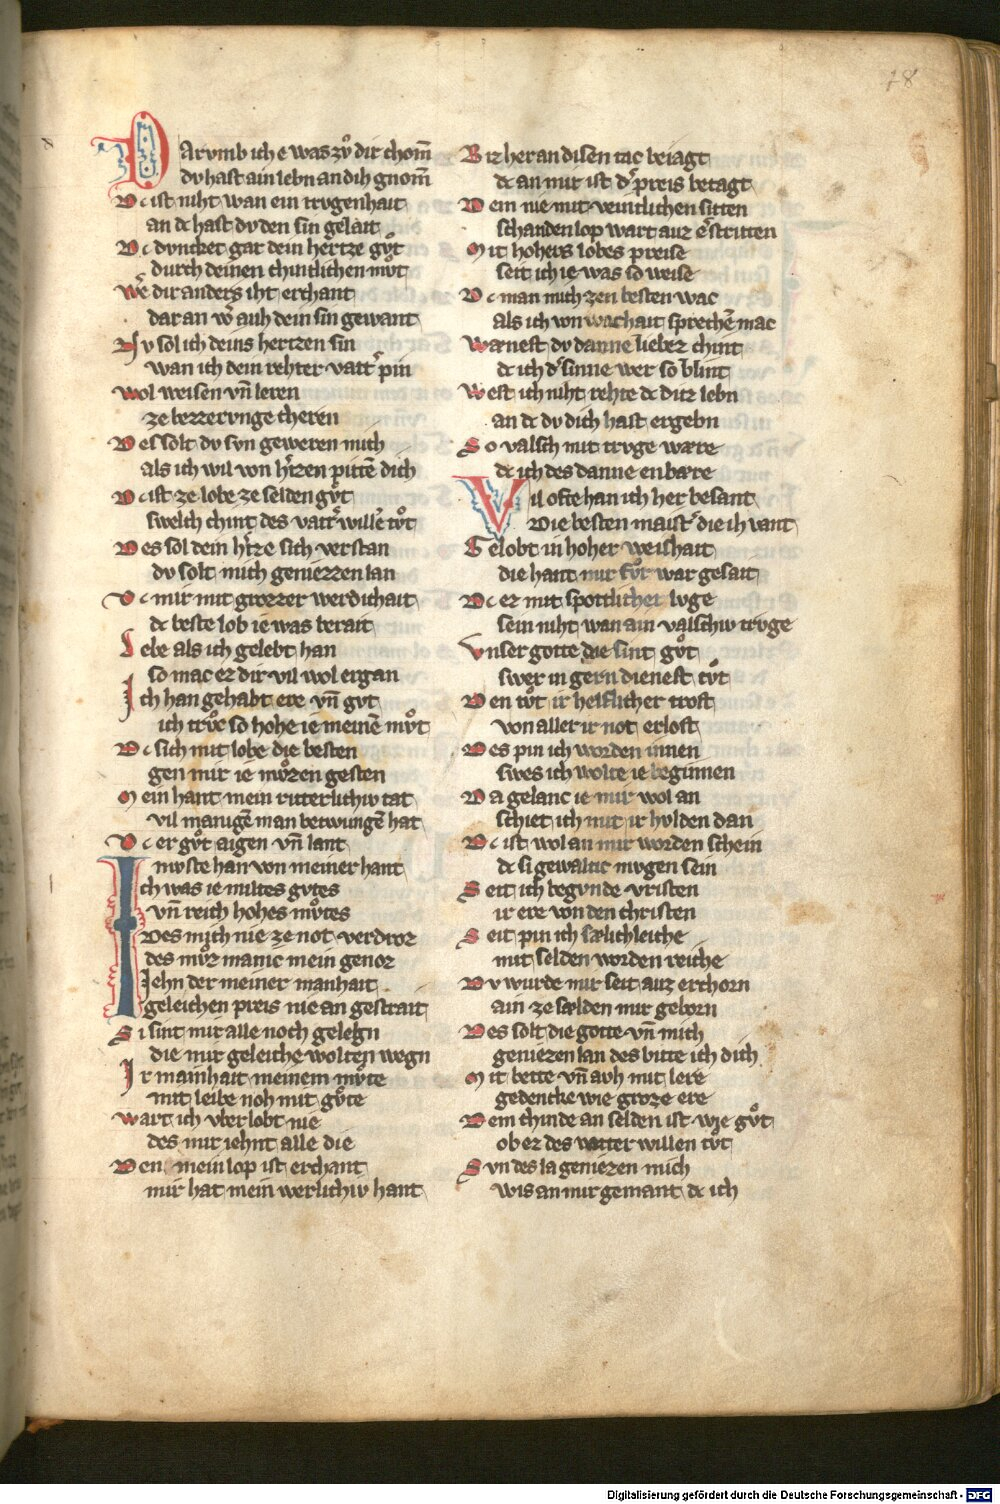 78
Darvmb ich e was zuͦ dir chom̄
dv hast ain lebn an dih gnom̄
Dc ist niht wan ein trvgenhait
an dc hast dv den sin gelait
Dc dvncket gar dein hertze guͦt
durch deinen chintlichen muͦt
Wer̄ dir anders iht erchant
dar an wr̄ auh dein sin gewant
Nv sol ich deins hertzen sin
wan ich dein rehter vatr̄ pin
Wol weisen vn̄ leren
ze bezzervnge cheren
Des solt dv svn geweren mich
als ich wil von hr̄tzen pittē dich
Dc ist ze lobe ze selden guͦt
swelch chint des vatr̄ willē tuͦt
Des sol dein hr̄tze sich verstan
dv solt mich geniezzen lan
Dc mir mit grozzer werdichait
dc beste lob ie was berait
Lebe als ich gelebt han
so mac ez dir vil wol ergan
Ich han gehabt ere vn̄ gvt
ich trvͦc so hohe ie meinē muͦt
Dc sich mit lobe die besten
gen mir ie muͦzen gesten
Mein hant mein ritterlichiv tat
vil manigē man betwungē hat
Dc er guͦt aigen vn̄ lant
mvste han von meiner hant
Ich was ie miltes gvtes
vn̄ reich hohes muͦtes
Des mich nie ze not verdroz
des muͦz manic mein genoz
Iehn der meiner manhait
geleichen preis nie an gestrait
Si sint mit alle noch gelegn
die mir geleiche wolten wegn
Ir mainhait meinem muͦte
mit leibe noh mit guͦte
Wart ich vber lobt nie
des mir iehnt alle die
Den mein lop ist erchant
mir hat mein werlichiv hant
Biz her an disen tac beiagt
dc an mir ist dr̄ preis betagt
Dem nie mit veintlichen sitten
schanden lop wart auz er̄stritten
Mit hohers lobes preise
seit ich ie was so weise
Dc man mich zen besten wac
als ich von wachait sprechē mac
Wænest dv danne lieber chint
dc ich dr̄ sinne wer so blint
West ich niht rehte dc ditz lebn
an dc dv dich hast ergebn
So valsch mit trvge wære
dc ich des danne enbære
Vil ofte han ich her besant
Die besten maistr̄ die ih vant
Gelobt in hoher weishait
die hant mir fvͦr war gesait
Dc ez mit spottlicher lvge
sein niht wan ain valschiv trvge
Vnser gotte die sint guͦt
swer in gern dienest tuͦt
Den tuͦt ir helflicher trost
von aller ir not erlost
Des pin ich worden innen
swes ich wolte ie beginnen
Da gelanc ie mir wol an
schiet ich mit ir hvlden dan
Dc ist wol an mir worden schein
dc si gewaltic mvgen sein
Seit ich begvnde vristen
ir ere von den christen
Seit pin ich sælichleiche
mit selden worden reiche
Dv wurde mir seit auz erchorn
ain ze sælden mir geborn
Des solt die gotte vn̄ mich
geniezen lan des bitte ich dich
Mit bette vn̄ avh mit lere
gedencke wie groze ere
Dem chinde an selden ist wie guͦt
ob ez des vatter willen tuͦt
Svn des la geniezen mich
wis an mir gemant dc ich
Digitalisierung gefördert durch die Deutsche Forschungsgemeinschaft - DFG